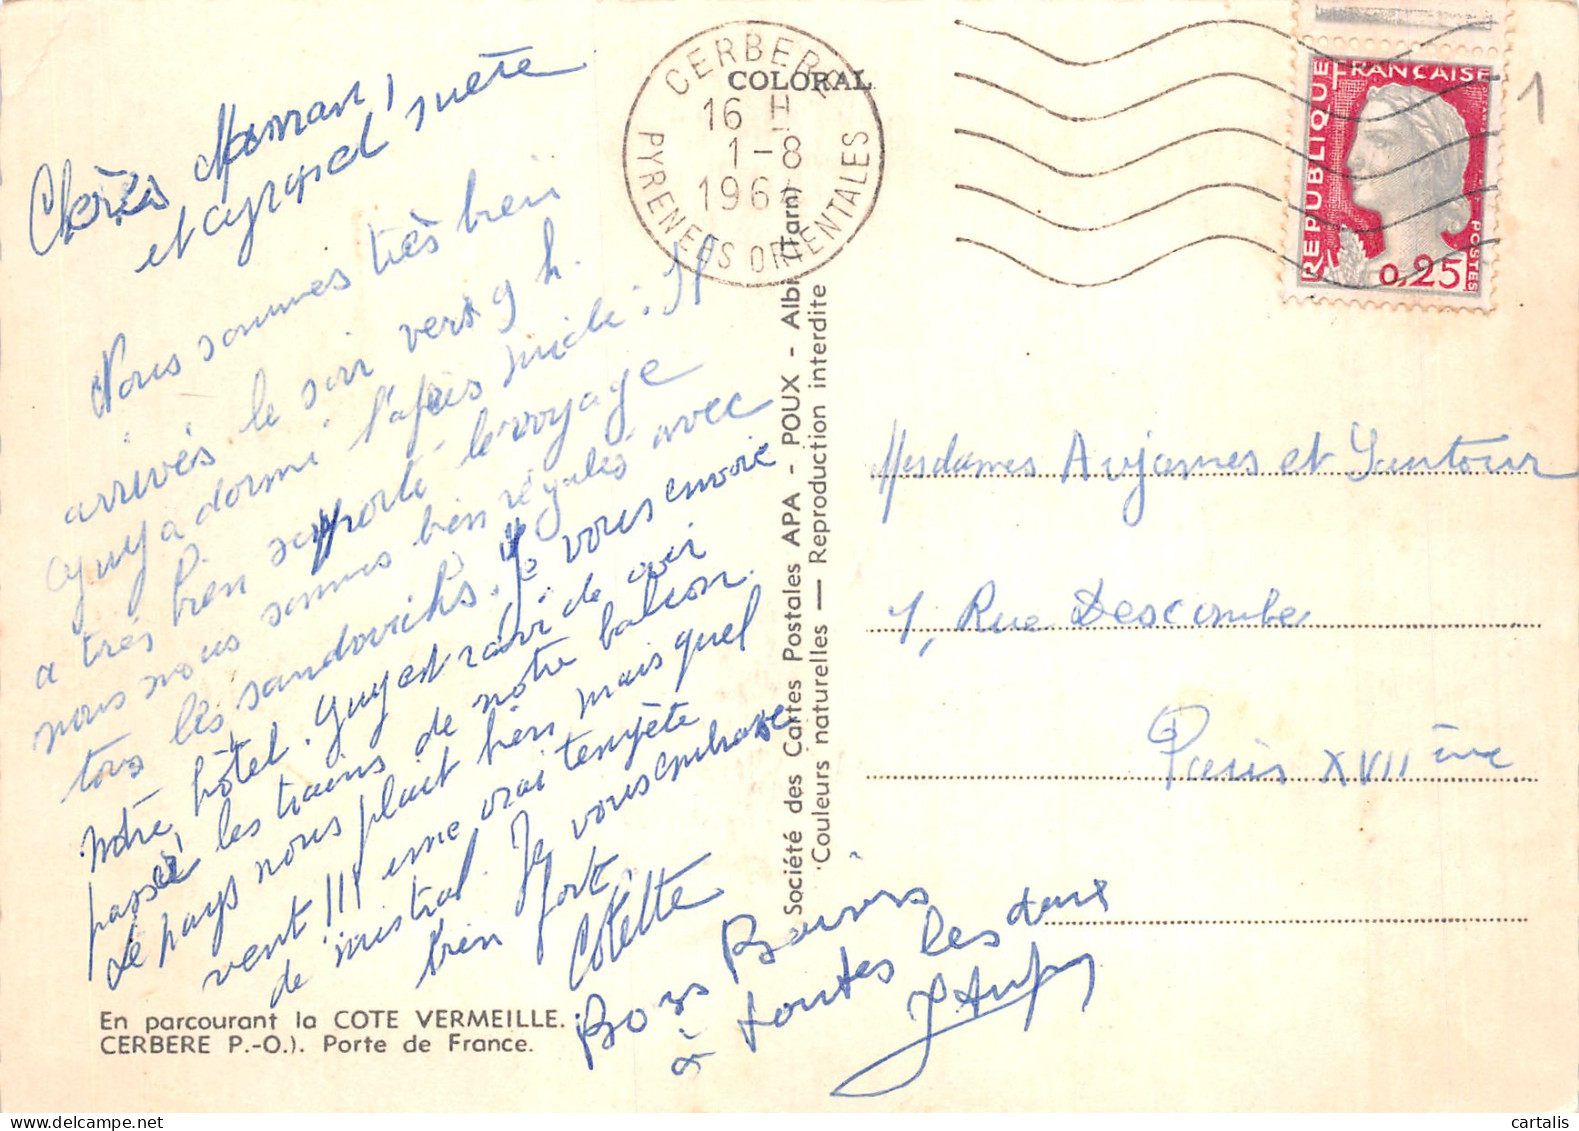 Chères Maman,
et
Nous sommes très bien
arrivés le soir vers 9 h.
Guy a dormi l'après midi. Il
a très bien supporté le voyage
nous nous sommes bien régalés avec
tous les sandwichs. Je vous envoie
notre hôtel. Guy est ravi de voir
passer les trains de notre balcon.
Le pays nous plait bien mais quel
vent !!! une vrai tempête
de mistral. Je vous embrasse
bien fort.
Colette
Bons Baisers
à toutes les deux
En parcourant la COTE VERMEILLE.
CERBERE P.-O.). Porte de France.
COLORAL
CERBERE
16 H
1-8
196
PYRENEES ORIENTALES
Société des Cartes Postales APA - POUX - Albi (Tarn)
Couleurs naturelles — Reproduction interdite
REPUBLIQUE
FRANCAISE
POSTES
0,25
1
Mesdames Aujames et
1, Rue Descombe
Paris XVII ème
cartalis
www.delcampe.net